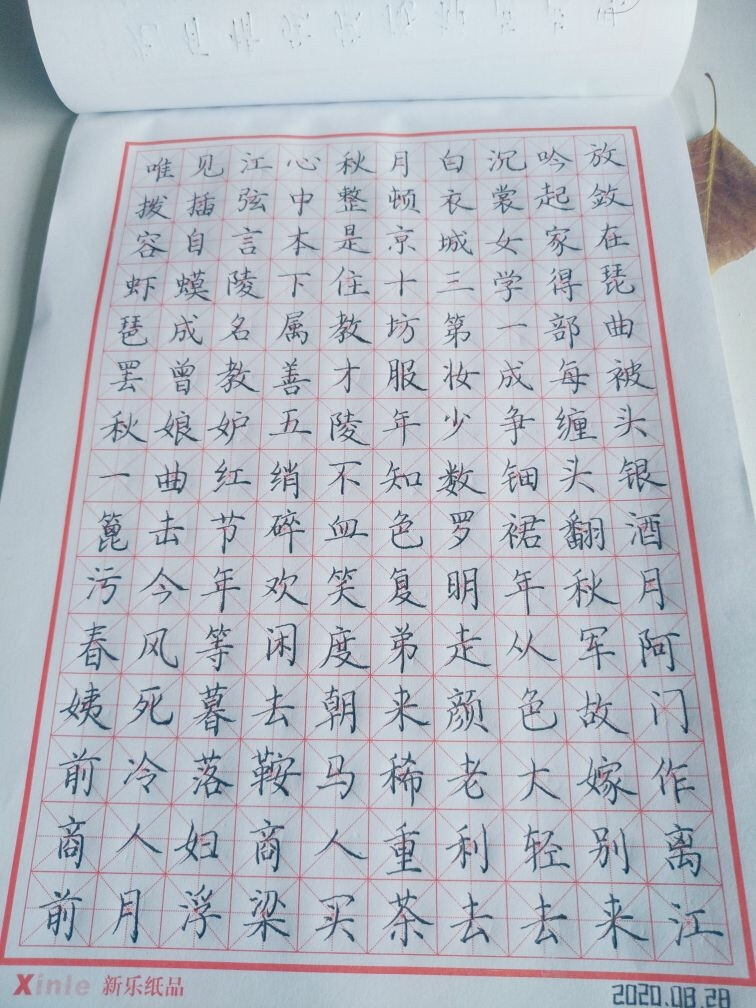 唯见江心秋月白沉吟放
拨插弦中整顿衣裳起敛
容自言本是京城女家在
虾蟆陵下住十三学得琵
琶成名属教坊第一部曲
罢曾教善才服妆成每被
秋娘妒五陵年少争缠头
一曲红绡不知数钿头银
篦击节碎血色罗裙翻酒
污今年欢笑复明年秋月
春风等闲度弟走从军阿
姨死暮去朝来颜色故门
前冷落鞍马稀老大嫁作
商人妇商人重利轻别离
前月浮梁买茶去去来江
Xinle 新乐纸品
2020.08.28